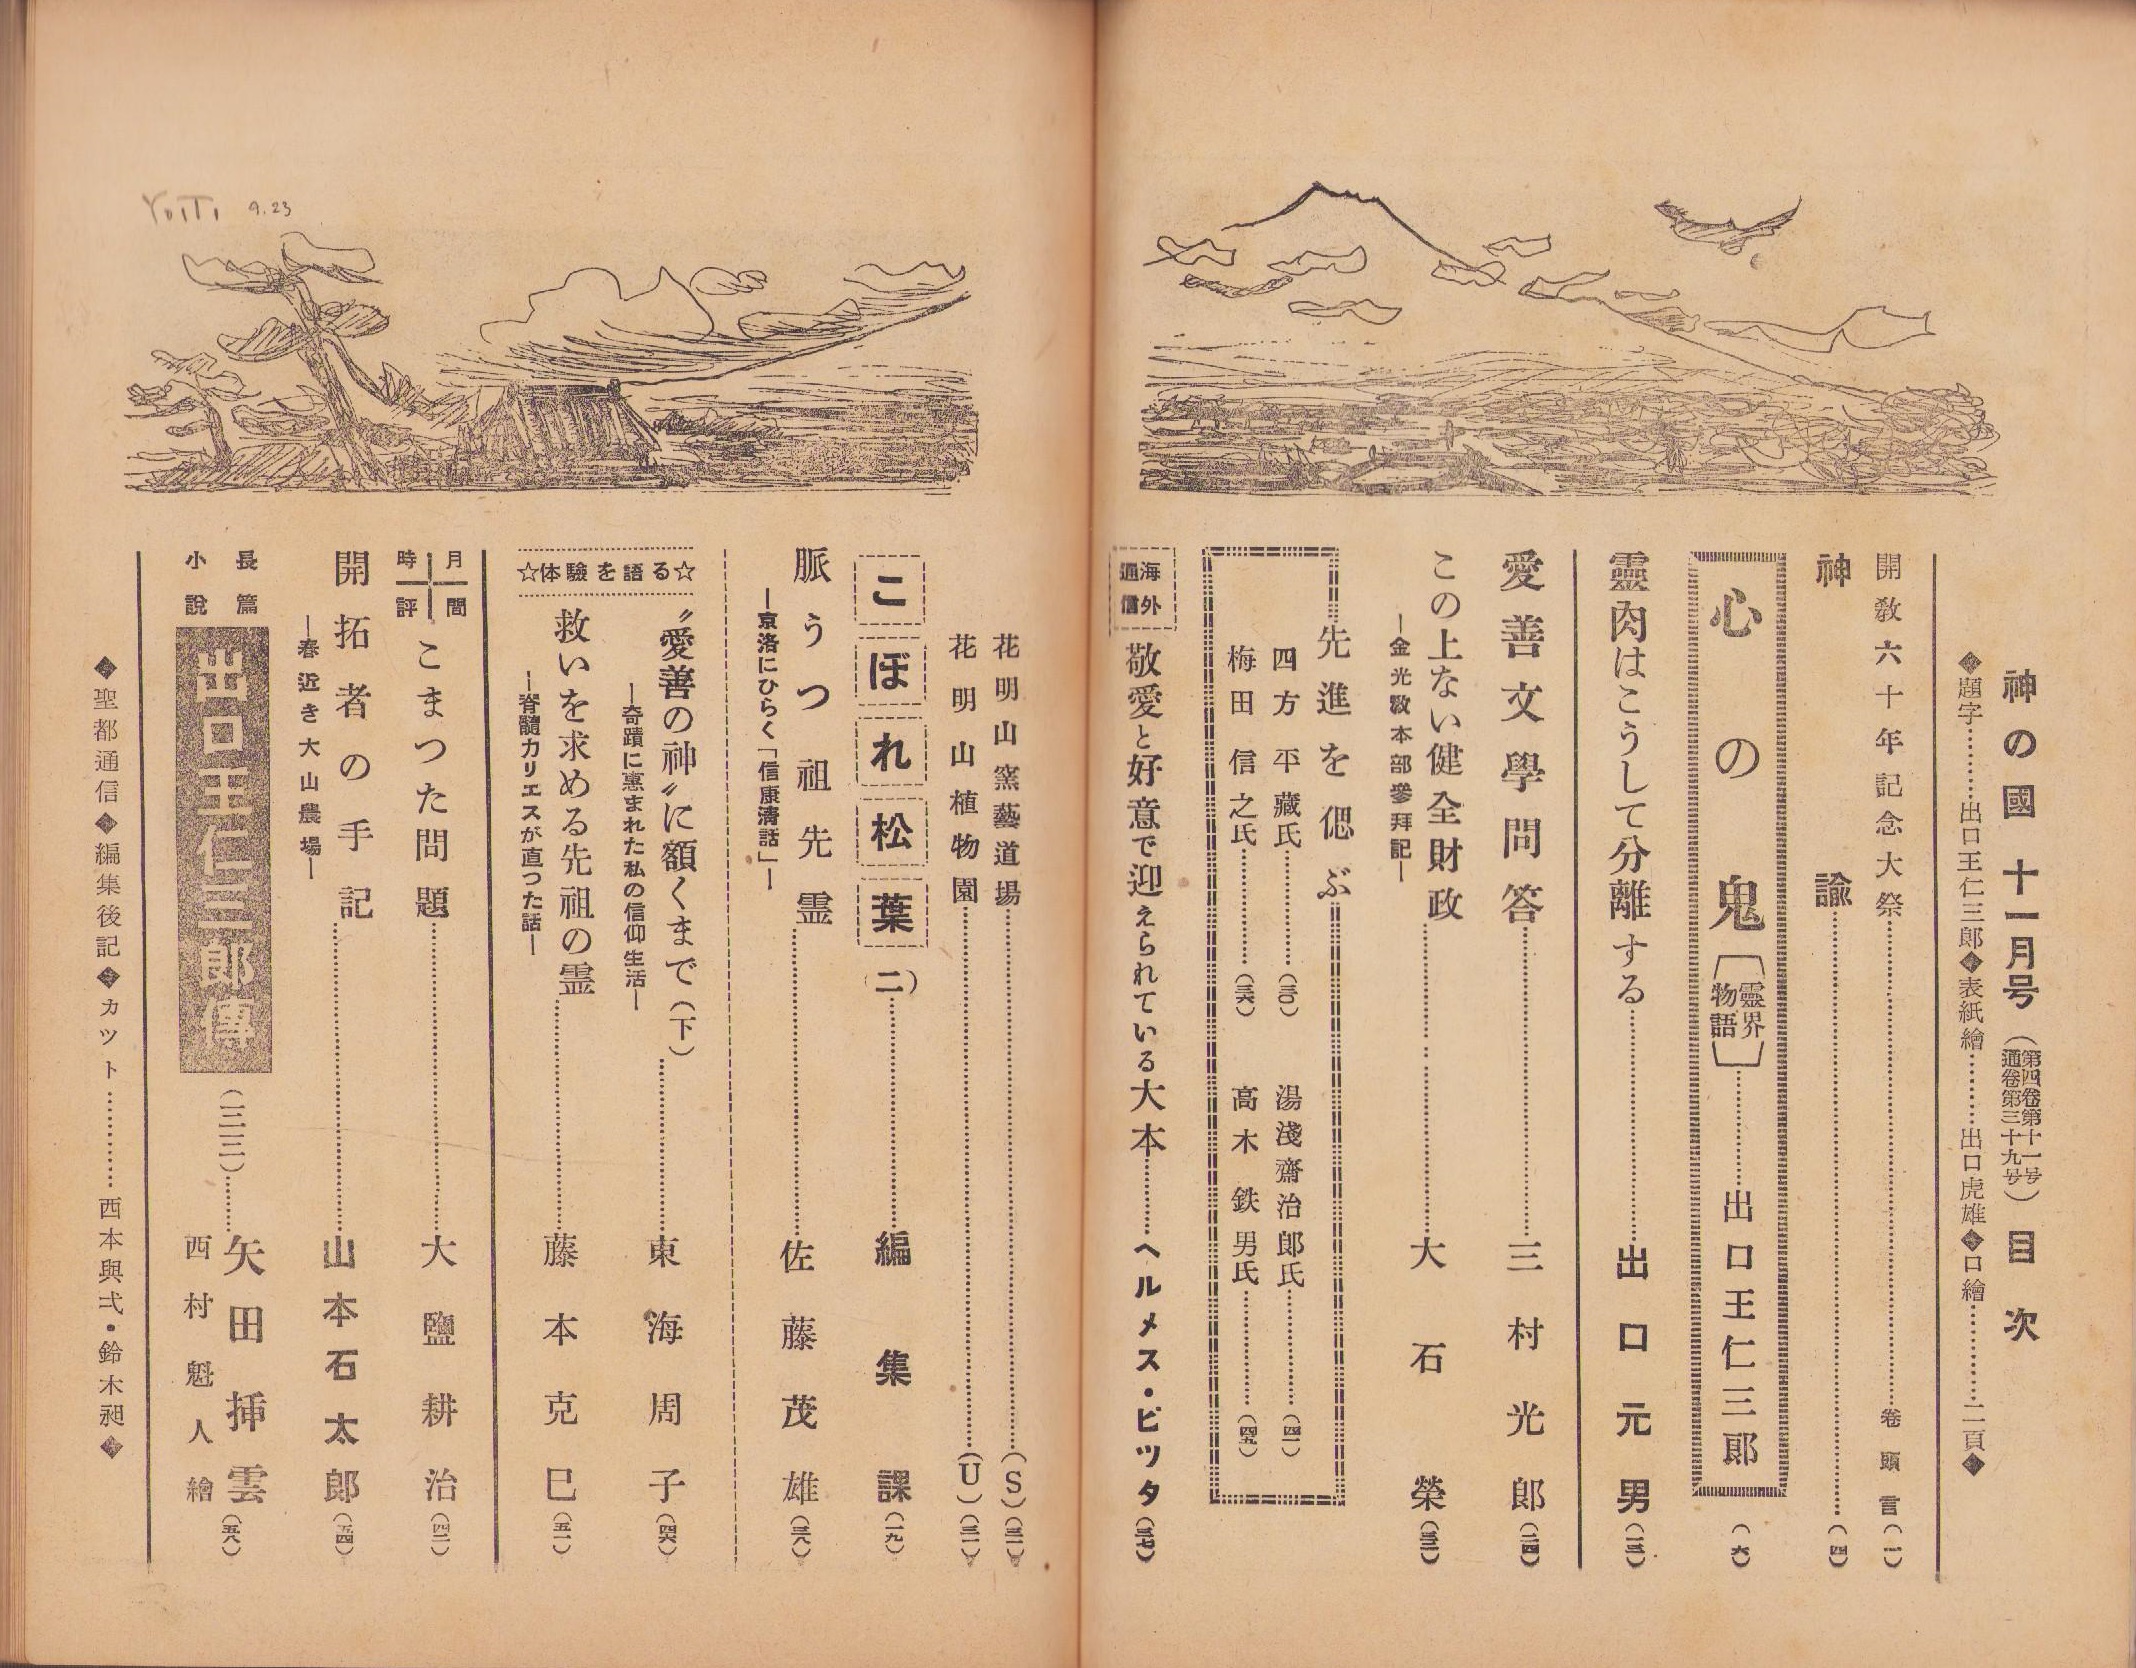 神の國 十一月号(第四卷第十一号 通卷第三十九号)目次
◆題字………出口王仁三郎◆表紙繪………出口虎雄◆口繪………二頁◆
開敎六十年記念大祭………卷頭言(一)
神諭………(四)
心の鬼[靈界物語]………出口王仁三郎(六)
靈肉はこうして分離する………出口元男(一三)
愛善文學問答………三村光郎(二四)
この上ない健全財政………大石榮(三三)
―金光敎本部參拜記―
先進を偲ぶ
四方平藏氏………(三〇) 湯淺齋治郎氏………(四一)
梅田信之氏………(三六) 高木鉄男氏………(四五)
海外通信
敬愛と好意で迎えられている大本………ヘルメス・ビツタ(三七)
花明山窯藝道場………(S)(三一)
花明山植物園………(U)(三一)
こぼれ松葉(二)………編集課(一九)
脈うつ祖先霊………佐藤茂雄(三八)
―京洛にひらく「信康淸話」―
☆体驗を語る☆
〝愛善の神〟に額くまで(下)………東海周子(四六)
―奇蹟に惠まれた私の信仰生活―
救いを求める先祖の霊………藤本克巳(五一)
―脊髓カリエスが直つた話―
月間時評
こまつた問題………大鹽耕治(四二)
開拓者の手記………山本石太郎(五四)
―春近き大山農場―
長篇小說
出口王仁三郎傳(二二)………矢田挿雲(五八)
西村魁人繪
◆聖都通信◆編集後記◆カツト………西本與弌・鈴木昶◆
YOITI 9.23